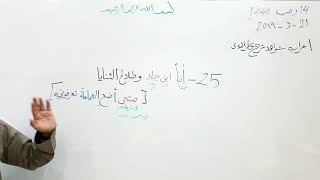 بسم الله الرحمن الرحيم
14 رجب 1440
2019-3-21
اعراب شواهد شرح قطر الندى
25- أنا ابن جلا وطلاع الثنايا
[متى أضع العمامة تعرفوني]